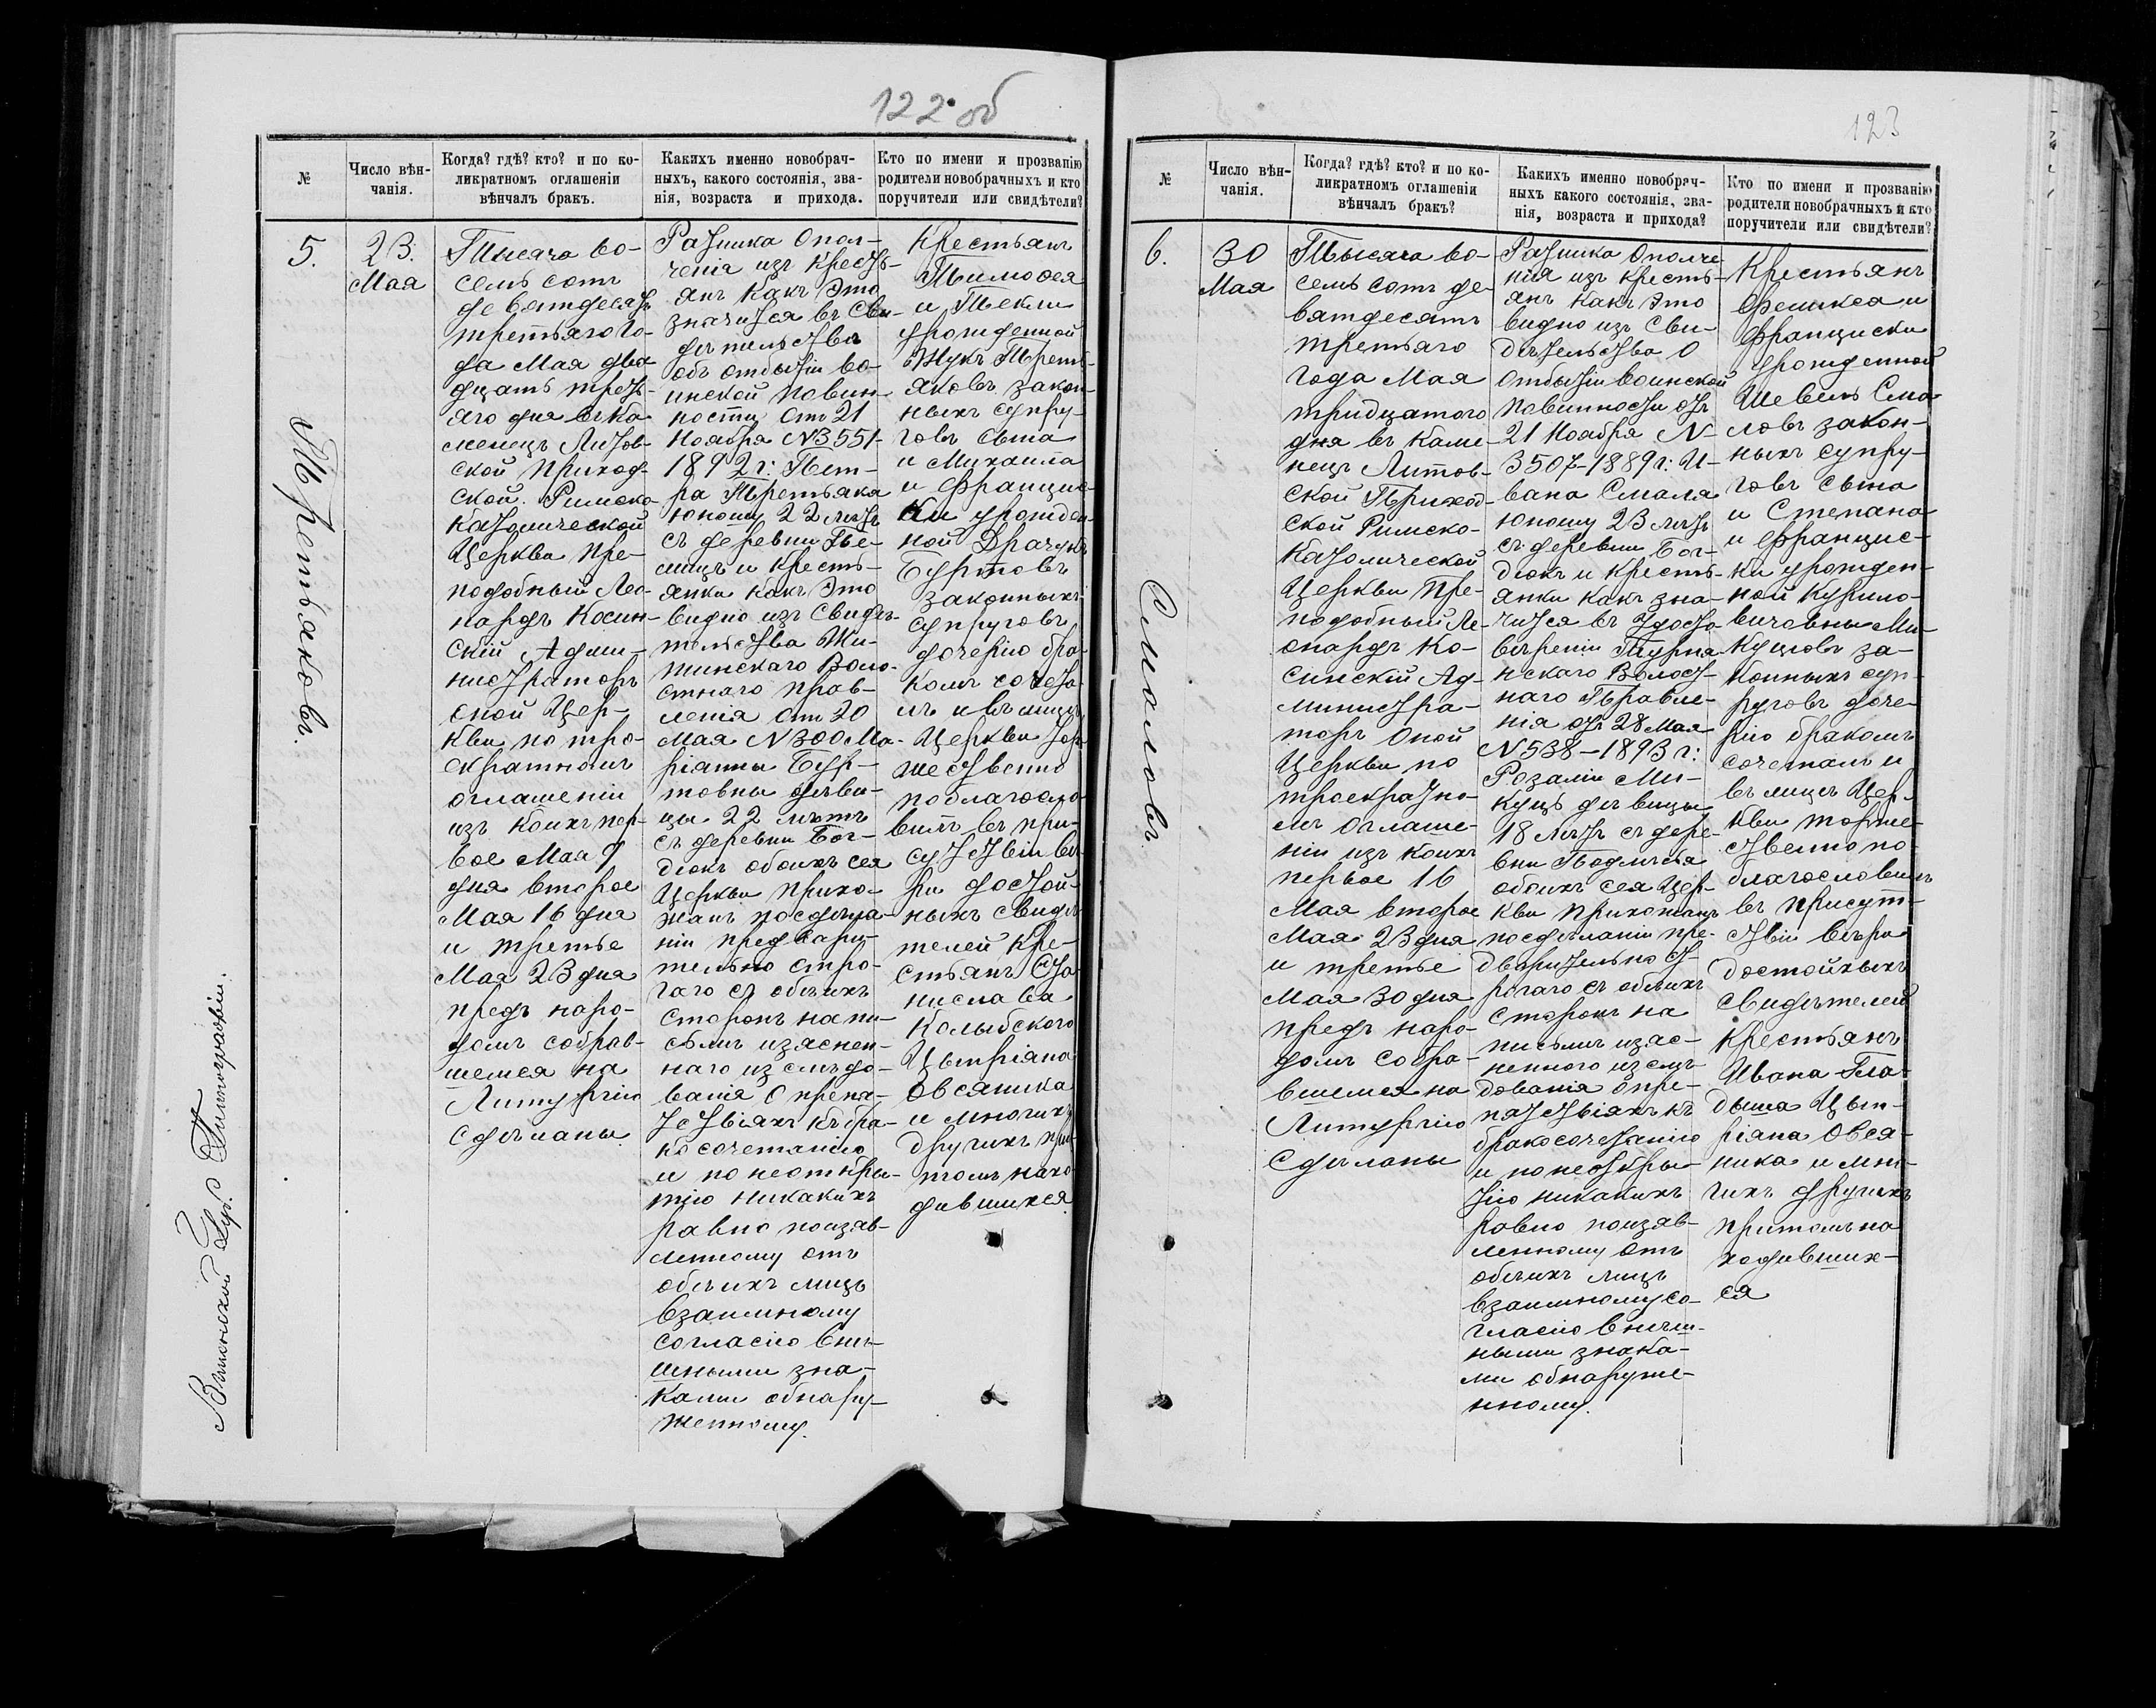 122 об
№
Число вѣн-
чанія.
Когда? гдѣ? кто? и по ко-
ликратномъ оглашеніи
вѣнчалъ бракъ.
Какихъ именно новобрач-
ныхъ, какого состоянія, зва-
нія, возраста и прихода.
Кто по имени и прозванію
родители новобрачныхъ и кто
поручители или свидѣтели?
5.
Третьяковъ.
23.
Мая
Тысяча во-
семь сотъ
девятдесятъ
третьяго го-
да Мая два-
дцать треть-
яго дня въ Ка-
менецъ Литов-
ской приход-
ской Римско-
Католической
Церкви пре-
подобный Лео-
нардъ Косин-
скій Адми-
нистраторъ
оной Цер-
кви по тро-
екратномъ
оглашеніи
изъ коихъ пер-
вое Мая 9
дня второе
Мая 16 дня
и третье
Мая 23 дня
предъ наро-
домъ собрав-
шемся на
Литургію
сдѣланы
Ратника Опол-
ченія изъ Кресть-
янъ какъ это
значится въ Сви-
дѣтельствѣ
объ отбытіи во-
инской повин-
ности отъ 21
Ноября N 3551-
1892 г: Пет-
ра Третьяка
юношу 22 лѣтъ
съ деревни Пе-
лищъ и Кресть-
янки какъ это
видно изъ Свидѣ-
тельства
отъ 20
Мая N 300 Ма-
ріанны Бур-
товны дѣви-
цы 22 лѣтъ
съ деревни Бог-
дюкъ обоихъ сея
Церкви прихо-
жанъ по сдѣла-
ніи предвари-
тельно стро-
гаго съ обѣихъ
сторонъ на пи-
сьмѣ изяснен-
наго изслѣдо-
ванія о препя-
тствіяхъ къ бра-
косочетанію
и по неоткры-
тію никакихъ
равно по изяв-
ленному отъ
обѣихъ лицъ
взаимному
согласію внѣ-
шными зна-
ками обнару-
женному.
Крестьянъ
Тимофея
и Текли
урожденной
Жукъ Треть-
яковъ закон-
ныхъ супру-
говъ сына
и Михаила
и Францис-
ки урожден-
ной Драчукъ
Буртовъ
законныхъ
супруговъ
дочерію бра-
комъ сочета-
лъ и въ лицѣ
Церкви тор-
жественно
поблагосло-
вилъ въ при-
сутствіи вѣ-
ры достой-
ныхъ свидѣ-
телей Кре-
стьянъ Ста-
нислава
Колыбского
Цыпріана
Овсяника
и многихъ
другихъ при
томъ нахо-
дившихся
123
№
Число вѣн-
чанія.
Когда? гдѣ? кто? и по ко-
ликратномъ оглашеніи
вѣнчалъ бракъ?
Какихъ именно новобрач-
ныхъ какого состоянія, зва-
нія, возраста и прихода?
Кто по имени и прозванію
родители новобрачныхъ и кто
поручители или свидѣтели?
6.
Смоловъ
30
Мая
Тысяча во-
семь сотъ де-
вятдесятъ
третьяго
года Мая
тридцатого
дня въ Каме-
нецъ Литов-
ской Приход-
ской Римско-
Католической
Церкви Пре-
подобный Ле-
онардъ Ко-
синскій Ад-
министра-
торъ оной
Церкви по
троекратно-
мъ оглаше-
ніи изъ коихъ
первое 16
Мая второе
Мая 23 дня
и третье
Мая 30 дня
предъ наро-
домъ собра-
вшемся на
Литургію
Сдѣланы
Ратника Ополче-
нія изъ Кресть-
янъ какъ это
видно изъ Сви-
дѣтельства о
отбытіи воинской
повинности отъ
21 Ноября N-
3507-1889 г: И-
вана Смоля
юношу 23 лѣтъ
съ деревни Бог-
дюкъ и кресть-
янки какъ зна-
чится въ Удосто-
вѣреніи Турна-
нскаго Волост-
наго Правле-
нія отъ 28 Мая
N 538-1893 г:
Розаліи Ми-
куць дѣвицы
18 лѣтъ съ дере-
вни
обоихъ сея Цер-
кви прихожанъ
по сдѣланіи пре-
дварительно ст-
рогаго съ обѣихъ
сторонъ на
письмѣ изяс-
неннаго изслѣ-
дованія о пре-
пятствіяхъ къ
бракосочетанію
и по неоткры-
тію никакихъ
равно по изяв-
ленному отъ
обѣихъ лицъ
взаимному со-
гласію внѣш-
ными знака-
ми обнаруже-
нному.
Крестьянъ
Феликса и
Франциски
урожденной
Шевель Смо-
ловъ закон-
ныхъ супру-
говъ сына
и Степана
и Францис-
ки урожден-
ной Курило-
вичовны Ми-
куцювъ за-
конныхъ суп-
руговъ доче-
рію бракомъ
сочеталъ и
въ лицѣ Цер-
кви торже-
ственно по-
благословилъ
въ присут-
ствіи вѣры
достойныхъ
свидѣтелей
Крестьянъ
Ивана Гла-
дыша Цып-
ріана Овся-
ника и мно-
гихъ другихъ
притомъ на-
ходивших-
ся
Виленской Губ. Типографіи.